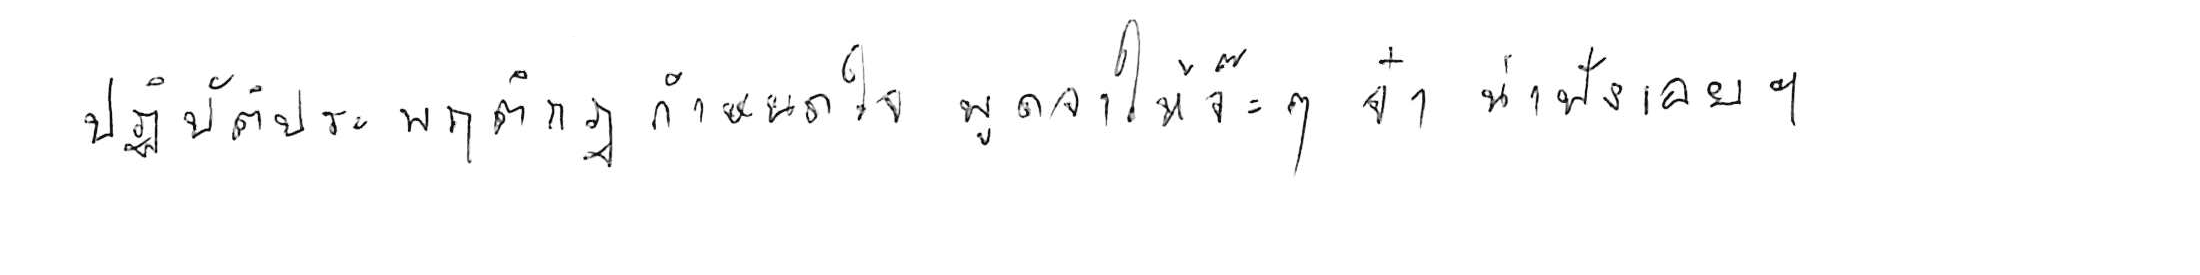 ปฏิบัติประพฤติกฎกำหนดใจ พูดจาให้จ๊ะๆ จ๋า น่าฟังเลยฯ